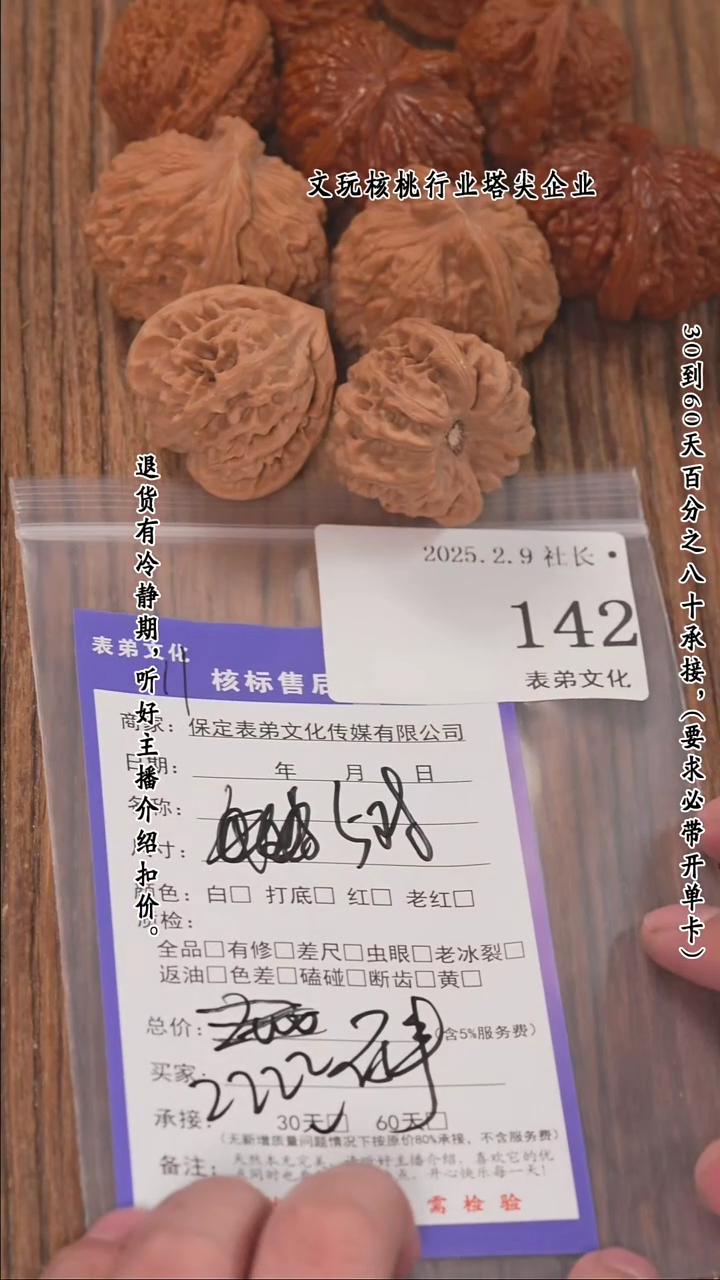 文玩核桃行业塔尖企业
30到60天百分之八十承接，（要求必带开单卡）
退货有冷静期，听好主播介绍扣价。
2025.2.9 社长
142
表弟文化
表弟文化
核标售后
商家：保定表弟文化传媒有限公司
日期： 年 月 日
名称：
尺寸：
颜色：白□ 打底□ 红□ 老红□
质检：
全品□有修□差尺□虫眼□老冰裂□
返油□色差□磕碰□断齿□黄□
总价： (含5%服务费)
买家：
2222
承接： 30天□ 60天□
(无新增质量问题情况下按原价80%承接，不含服务费)
备注：天然本无完美，请听好主播介绍，喜欢它的优
点，开心快乐每一天！
需检验